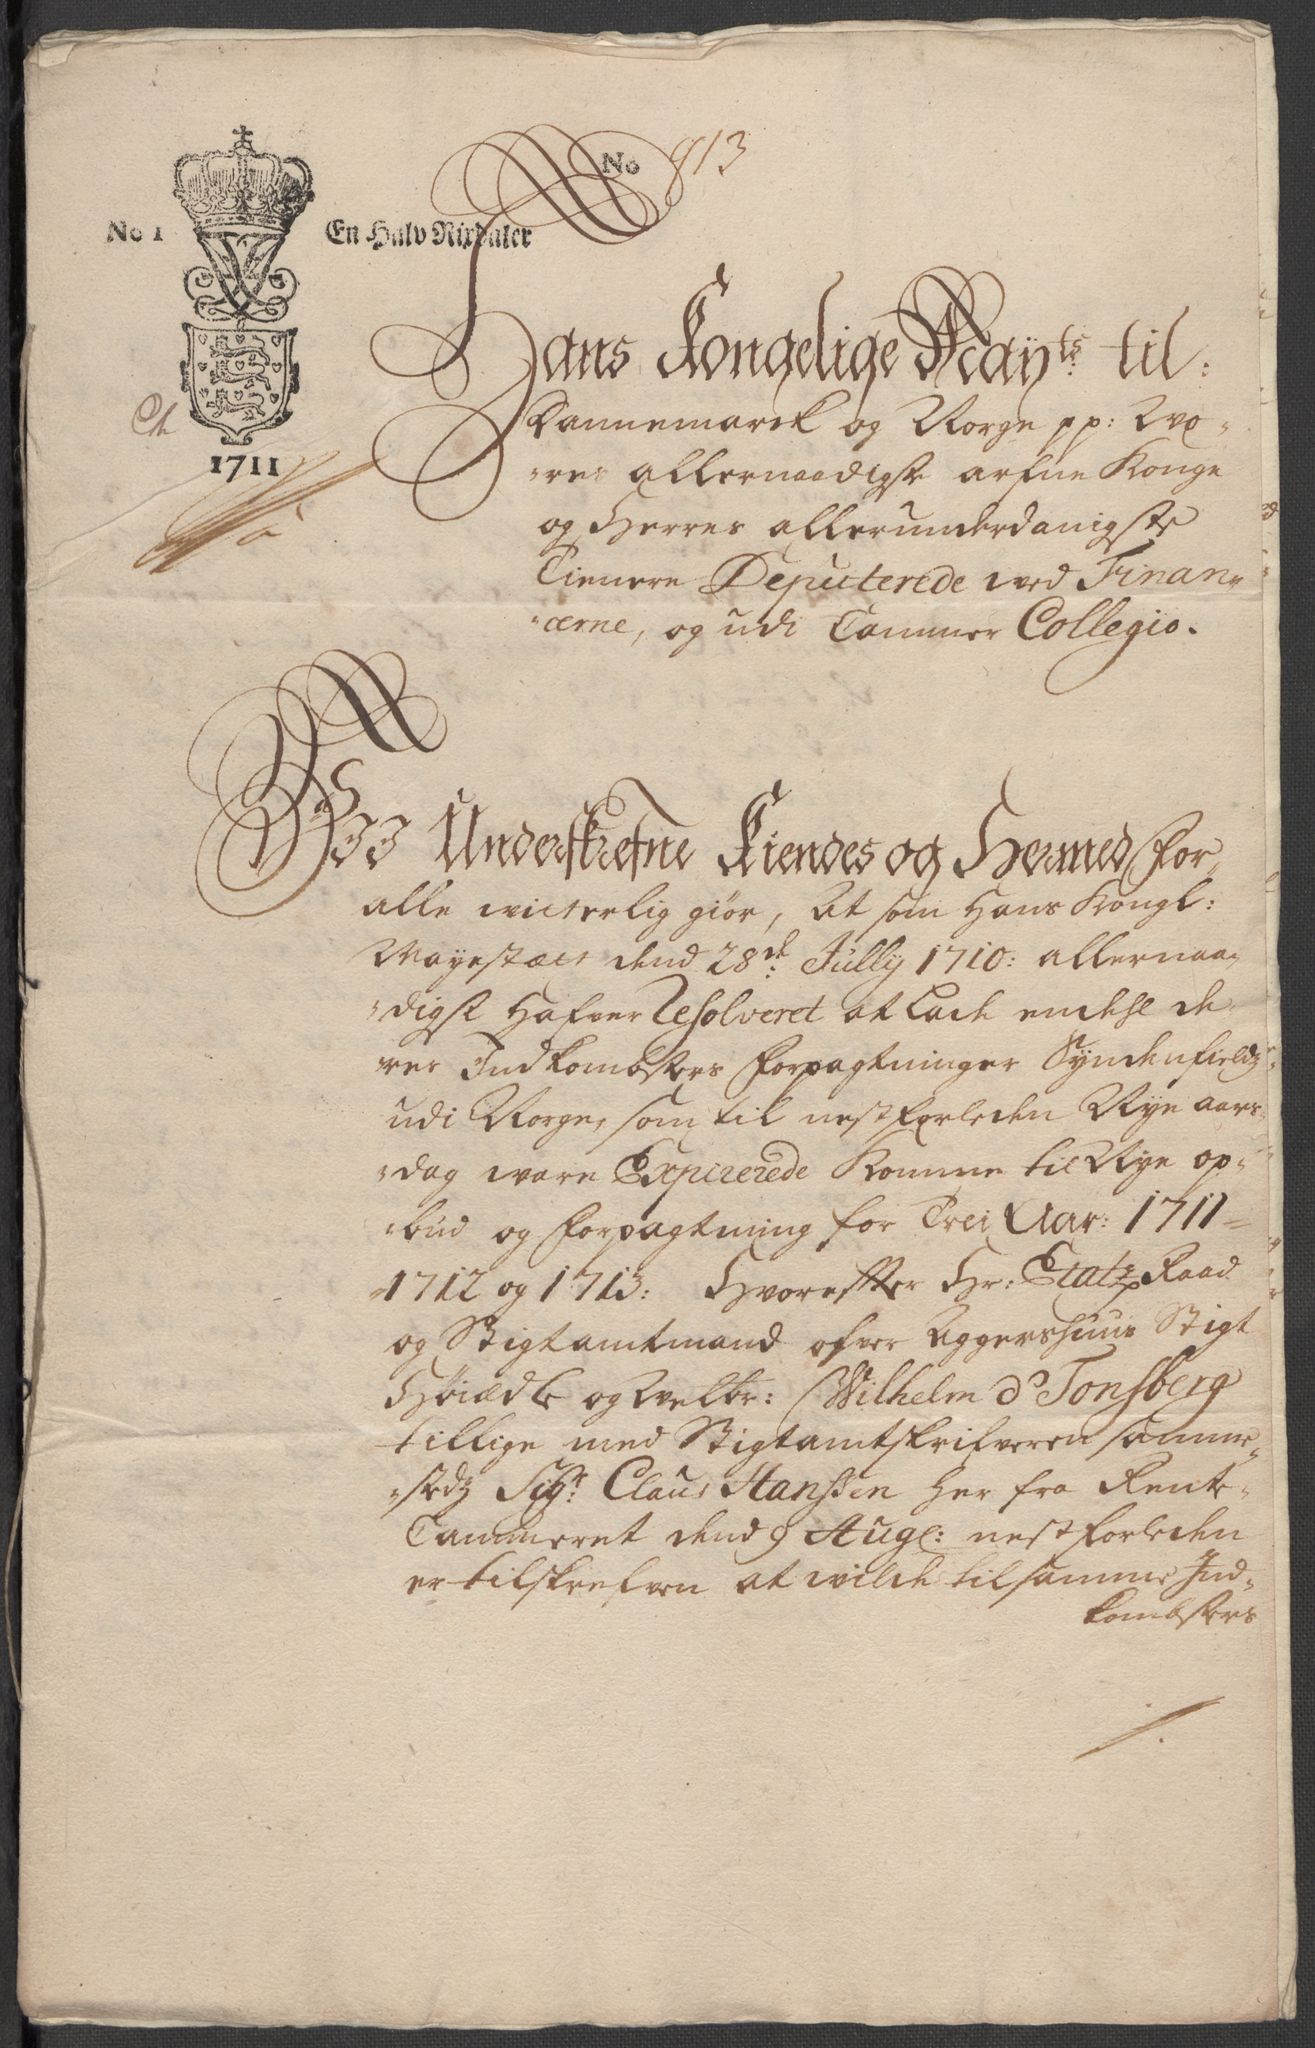 No 813
No 1 En Halv Rixdaler
1711
Hans Kongelige Mayts: til
Dannemarck og Norge pp: Wo-
-res allernaadigste arfue Konge
og Herres allerunderdanigste
Tienere Deputerede wed Finan-
-cerne, og udi Cammer Collegio.
WII Underskrefne Kiendes og Hermed for
alle witterlig giør, At som Hans Kongl:
Mayestæts dend 28de: Jully 1710: allernaa-
-digst Hafver Resolveret at lade endehl de-
-res Indkombsters forpagtninger Syndenfields
udi Norge, som til nestforleden Nye aars-
-dag ware Expirerede komme til Nye op-
-bud og forpagtning for Trei Aar: 1711-
1712 og 1713: Hvorefter Hr: Etatz Raad
og Stigtamtmand ofver Aggershuus Stigt
Høiædle og Welbr: Wilhelm d' Tonsberg
tillige med Stigtamtskrifveren samme-
-stedz Sigr: Claus Hanssen her fra Rente-
Cammeret dend 9 Aug: nestforleden
er tilskrefven at wilde til samme Ind-
kombsters